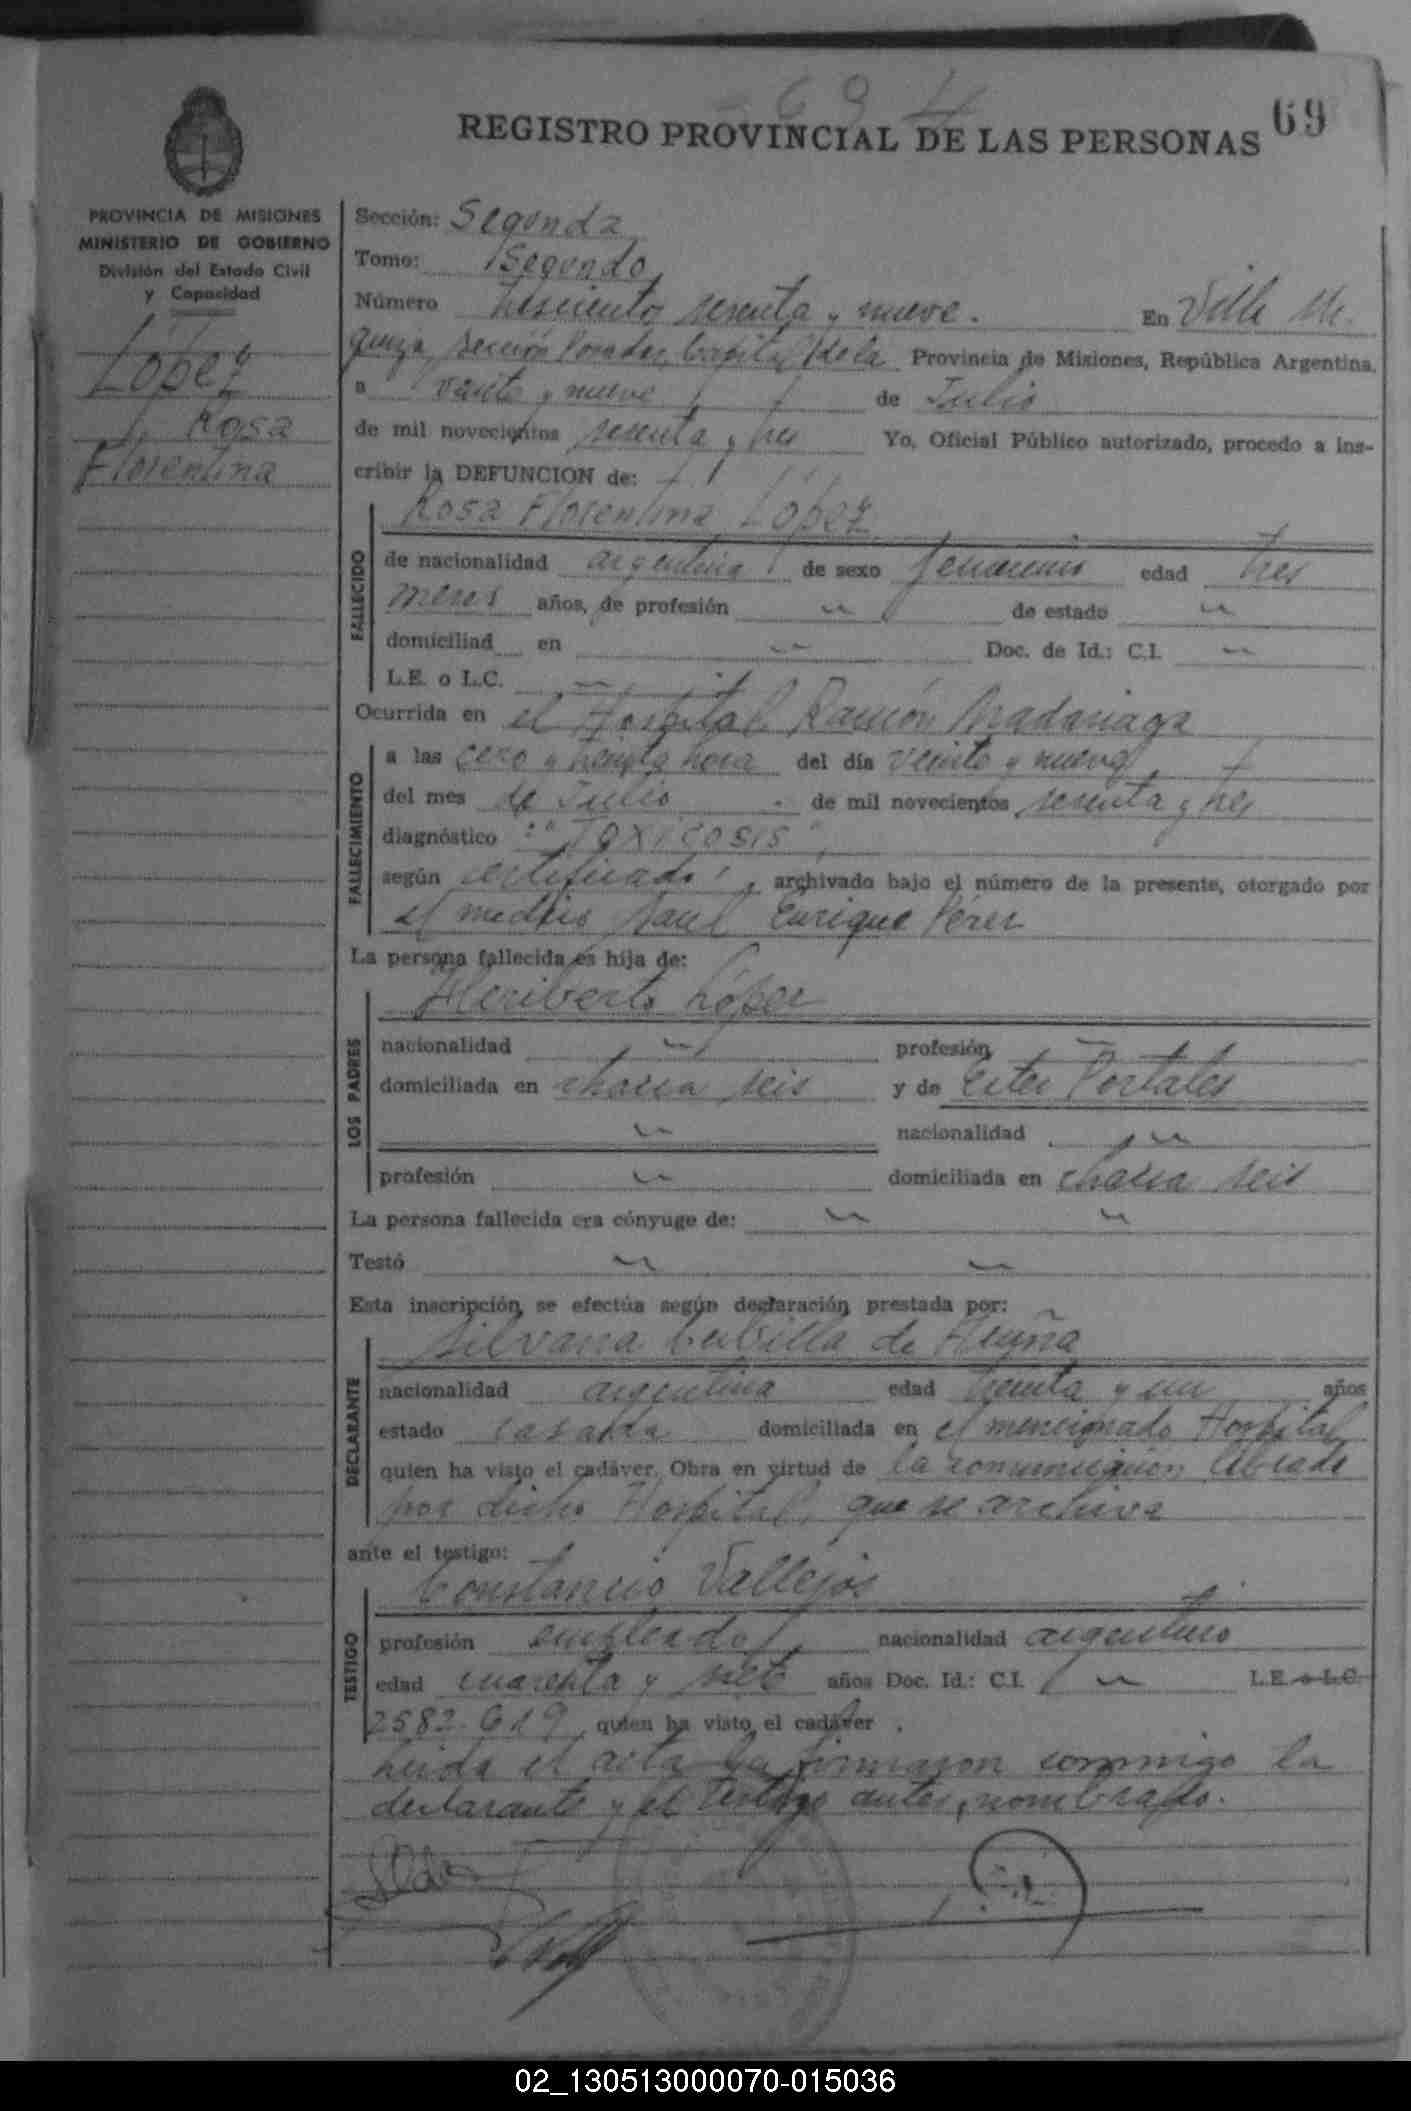 694
REGISTRO PROVINCIAL DE LAS PERSONAS
69
PROVINCIA DE MISIONES
MINISTERIO DE GOBIERNO
División del Estado Civil
y Capacidad
López
Rosa
Florentina
Sección: Segunda
Tomo: Segundo
Número trescientos sesenta y nueve. En Villa Ur
quiza, sección Posadas, Capital de la Provincia de Misiones, República Argentina,
a veinte y nueve de Julio
de mil novecientos sesenta y tres Yo, Oficial Público autorizado, procedo a ins-
cribir la DEFUNCION de:
Rosa Florentina López
FALLECIDO
de nacionalidad argentina de sexo femenino edad tres
meses años, de profesión " de estado "
domiciliad en " Doc. de Id.: C.I. "
L.E. o L.C. "
Ocurrida en el Hospital Ramón Madariaga
FALLECIMIENTO
a las cero y treinta hora del día veinte y nueve
del mes de Julio de mil novecientos sesenta y tres
diagnóstico : "Toxicosis",
según certificado, archivado bajo el número de la presente, otorgado por
el médico Enrique Pérez
La persona fallecida es hija de:
LOS PADRES
Heriberto López
nacionalidad " profesión "
domiciliada en chacra seis y de Ester Portales
" nacionalidad "
profesión " domiciliada en chacra seis
La persona fallecida era cónyuge de: " "
Testó " "
Esta inscripción se efectúa según declaración prestada por:
DECLARANTE
Silvana de
nacionalidad argentina edad treinta y un años
estado casada domiciliada en el mencionado Hospital
quien ha visto el cadáver. Obra en virtud de la comunicación librada
por dicho Hospital, que se archiva
ante el testigo:
TESTIGO
Constancio Vallejos
profesión empleado, nacionalidad argentino
edad cuarenta y siete años Doc. Id.: C.I. " L.E. o L.C.
2582.619 quien ha visto el cadáver.
Leida el acta la firmaron conmigo la
declarante y el testigo antes nombrado.
02_130513000070-015036